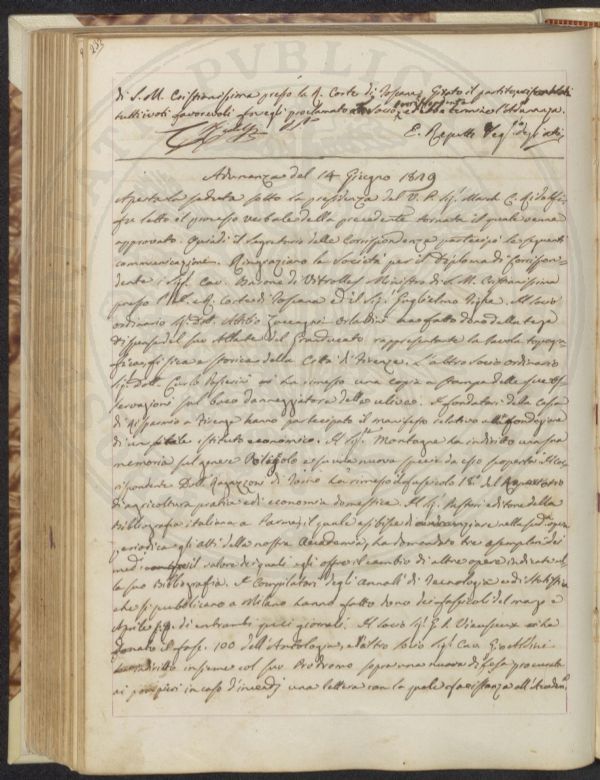 232
di S. M. Cristianissima presso la R. Corte di Toscana. Girato il partito
tutti i voti favorevoli fu egli proclamato Socio corrispondente e ebbe termine l'Adunanza.
E. Repetti Seg.
Adunanza del 14 Giugno 1829
Aperta la seduta sotto la presidenza del V. P. Sig. March. C. Ridolfi
fu letto il processo verbale della precedente tornata il quale venne
approvato. Quindi il Segretario delle Corrispondenze partecipò le seguenti
comunicazioni. Ringraziano la Società per il Diploma di Corrispon-
dente i Sig. Cav. Barone di Vitrolles Ministro di S. M. Cristianissima
presso l'I. e R. Corte di Toscana ed il Sig. Guglielmo Il Socio
ordinario Sig. Dott. Attilio Zuccagni Orlandini ha fatto dono della terza
dispensa del suo Atlante del Granducato rappresentante la tavola topogra-
fica, fisica e storica della Città di Firenze. L'altro socio ordinario
Sig. Dott. Carlo Passerini ha rimesso una copia a stampa delle sue Os-
servazioni sul baco danneggiatore delle ulive. I fondatori della Cassa
di Risparmio a Firenze hanno partecipato il manifesto relativo alla fondazione
di un tale istituto economico. Il Sig. Montagne ha indiritto una sua
memoria sul genere e su una nuova specie da esso scoperta. Il Cor-
rispondente Dott. Ragazzoni di Torino ha rimesso il fascicolo 18º del Repertorio
di agricoltura pratica e di economia domestica. Il Sig. Pastori editore della
Bibliografia italiana a Parma, il quale esibisce di annunziare nella sud. opera
periodica gli atti della nostra Accademia, ha domandato tre esemplari dei
med. il valore dei quali egli offre il cambio di altre opere indicate nel-
la sua Bibliografia. I Compilatori degli Annali di Tecnologia e di Statistica
che si pubblicano a Milano hanno fatto dono dei fascicoli del marzo e
Aprile pp. di entrambi quei giornali. Il Socio Sig. G. P. Vieusseux ci ha
donato il fasc. 100 dell'Antologia, e l'altro socio Sig. Cav.
ha indiritto insieme col suo Prodromo sopra una nuova difesa procurata
ai pompieri in caso d'incendj una lettera con la quale fa istanza all'Accadem.